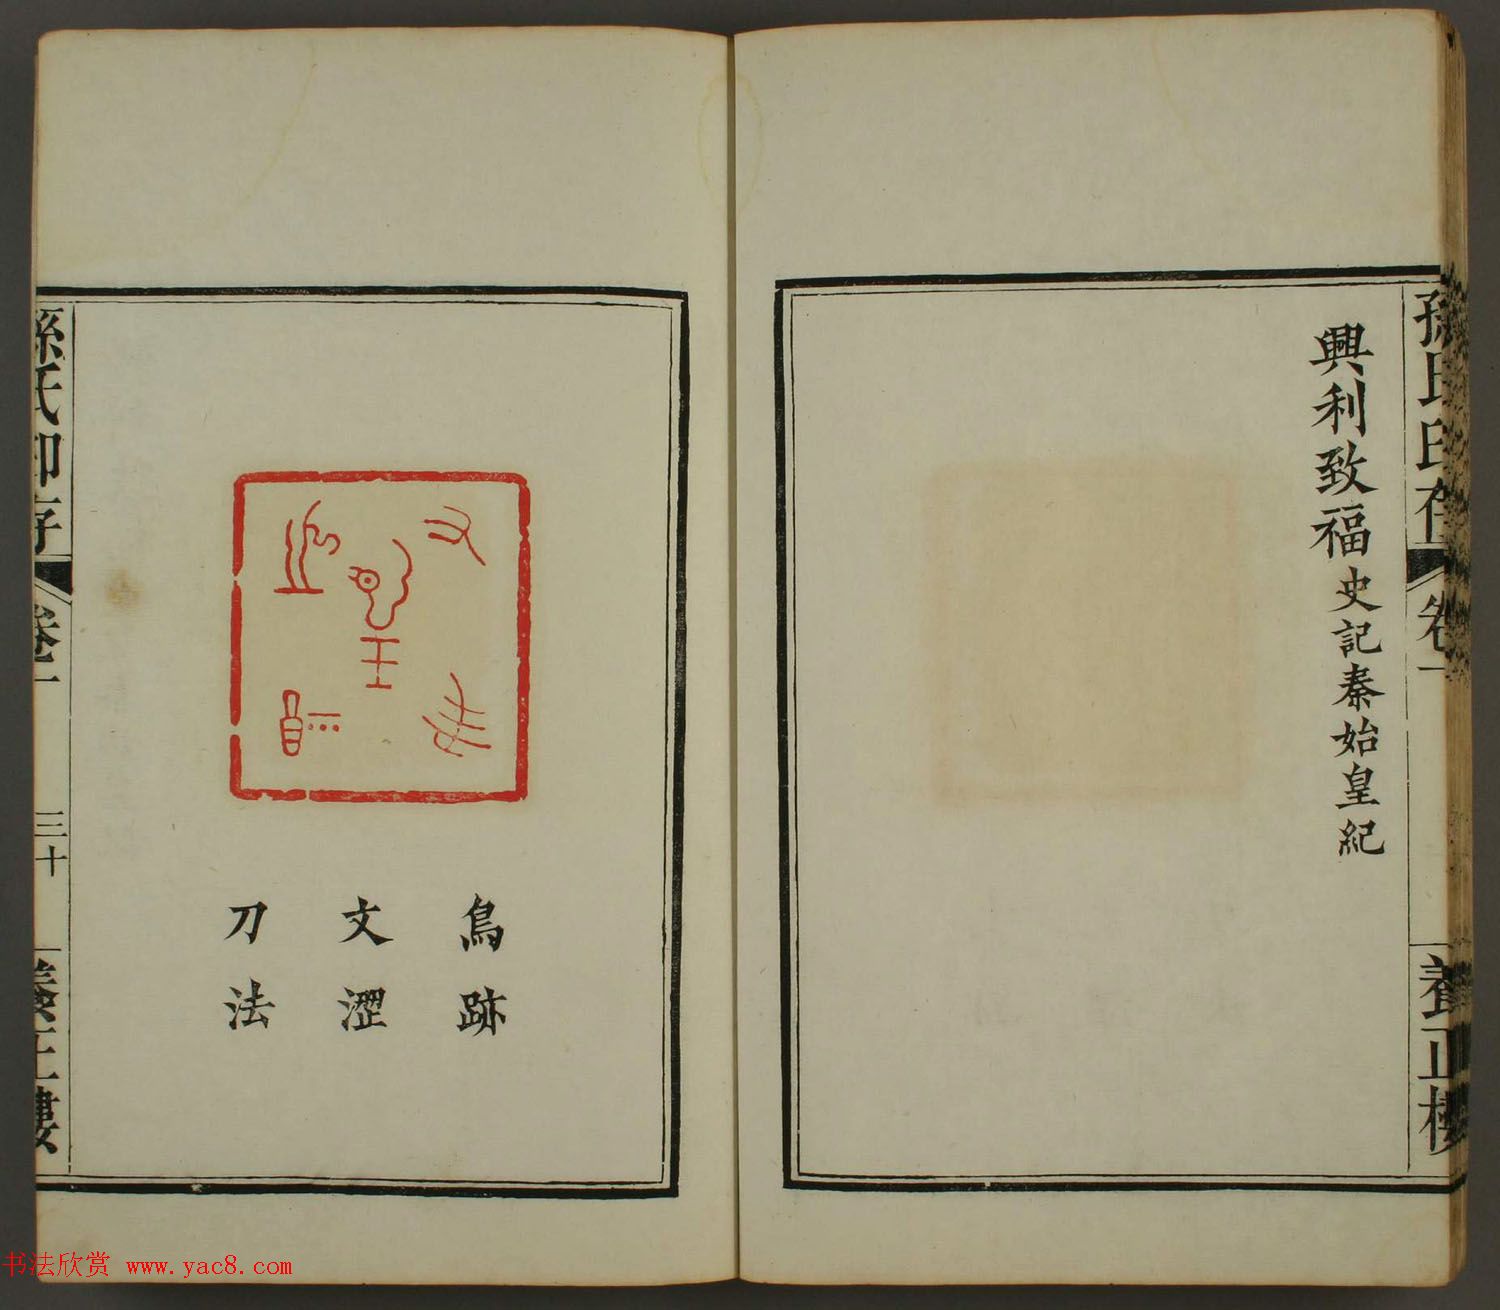 孫氏印存
卷一
養正樓
興利致福史記秦始皇紀
鳥跡
文澀
刀法
孫氏印存
卷一
三十
養正樓
书法欣赏 www.yac8.com